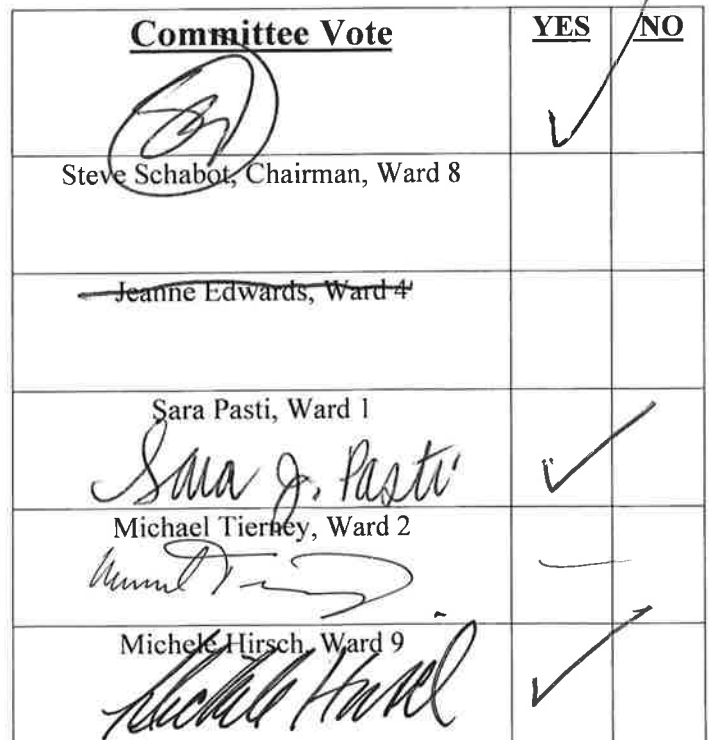 Committee Vote YES NO
Steve Schabot, Chairman, Ward 8
Jeanne Edwards, Ward 4
Sara Pasti, Ward 1
Sara J. Pasti
Michael Tierney, Ward 2
Michele Hirsch, Ward 9
Michele Hirsch